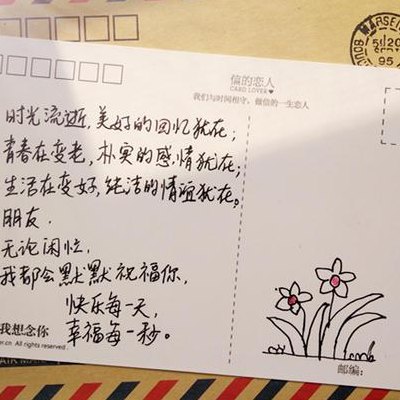 MARSEI
5I 20
95
信的恋人
CARD LOVER
我们与时间相守，做信的一生恋人
时光流逝，美好的回忆犹在；
青春在变老，朴实的感情犹在；
生活在变好，纯洁的情谊犹在。
朋友，
无论闲忙，
我都会默默祝福你，
快乐每一天，
我想念你
幸福每一秒。
er.cn All rights reserved.
AIR MAI
邮编：